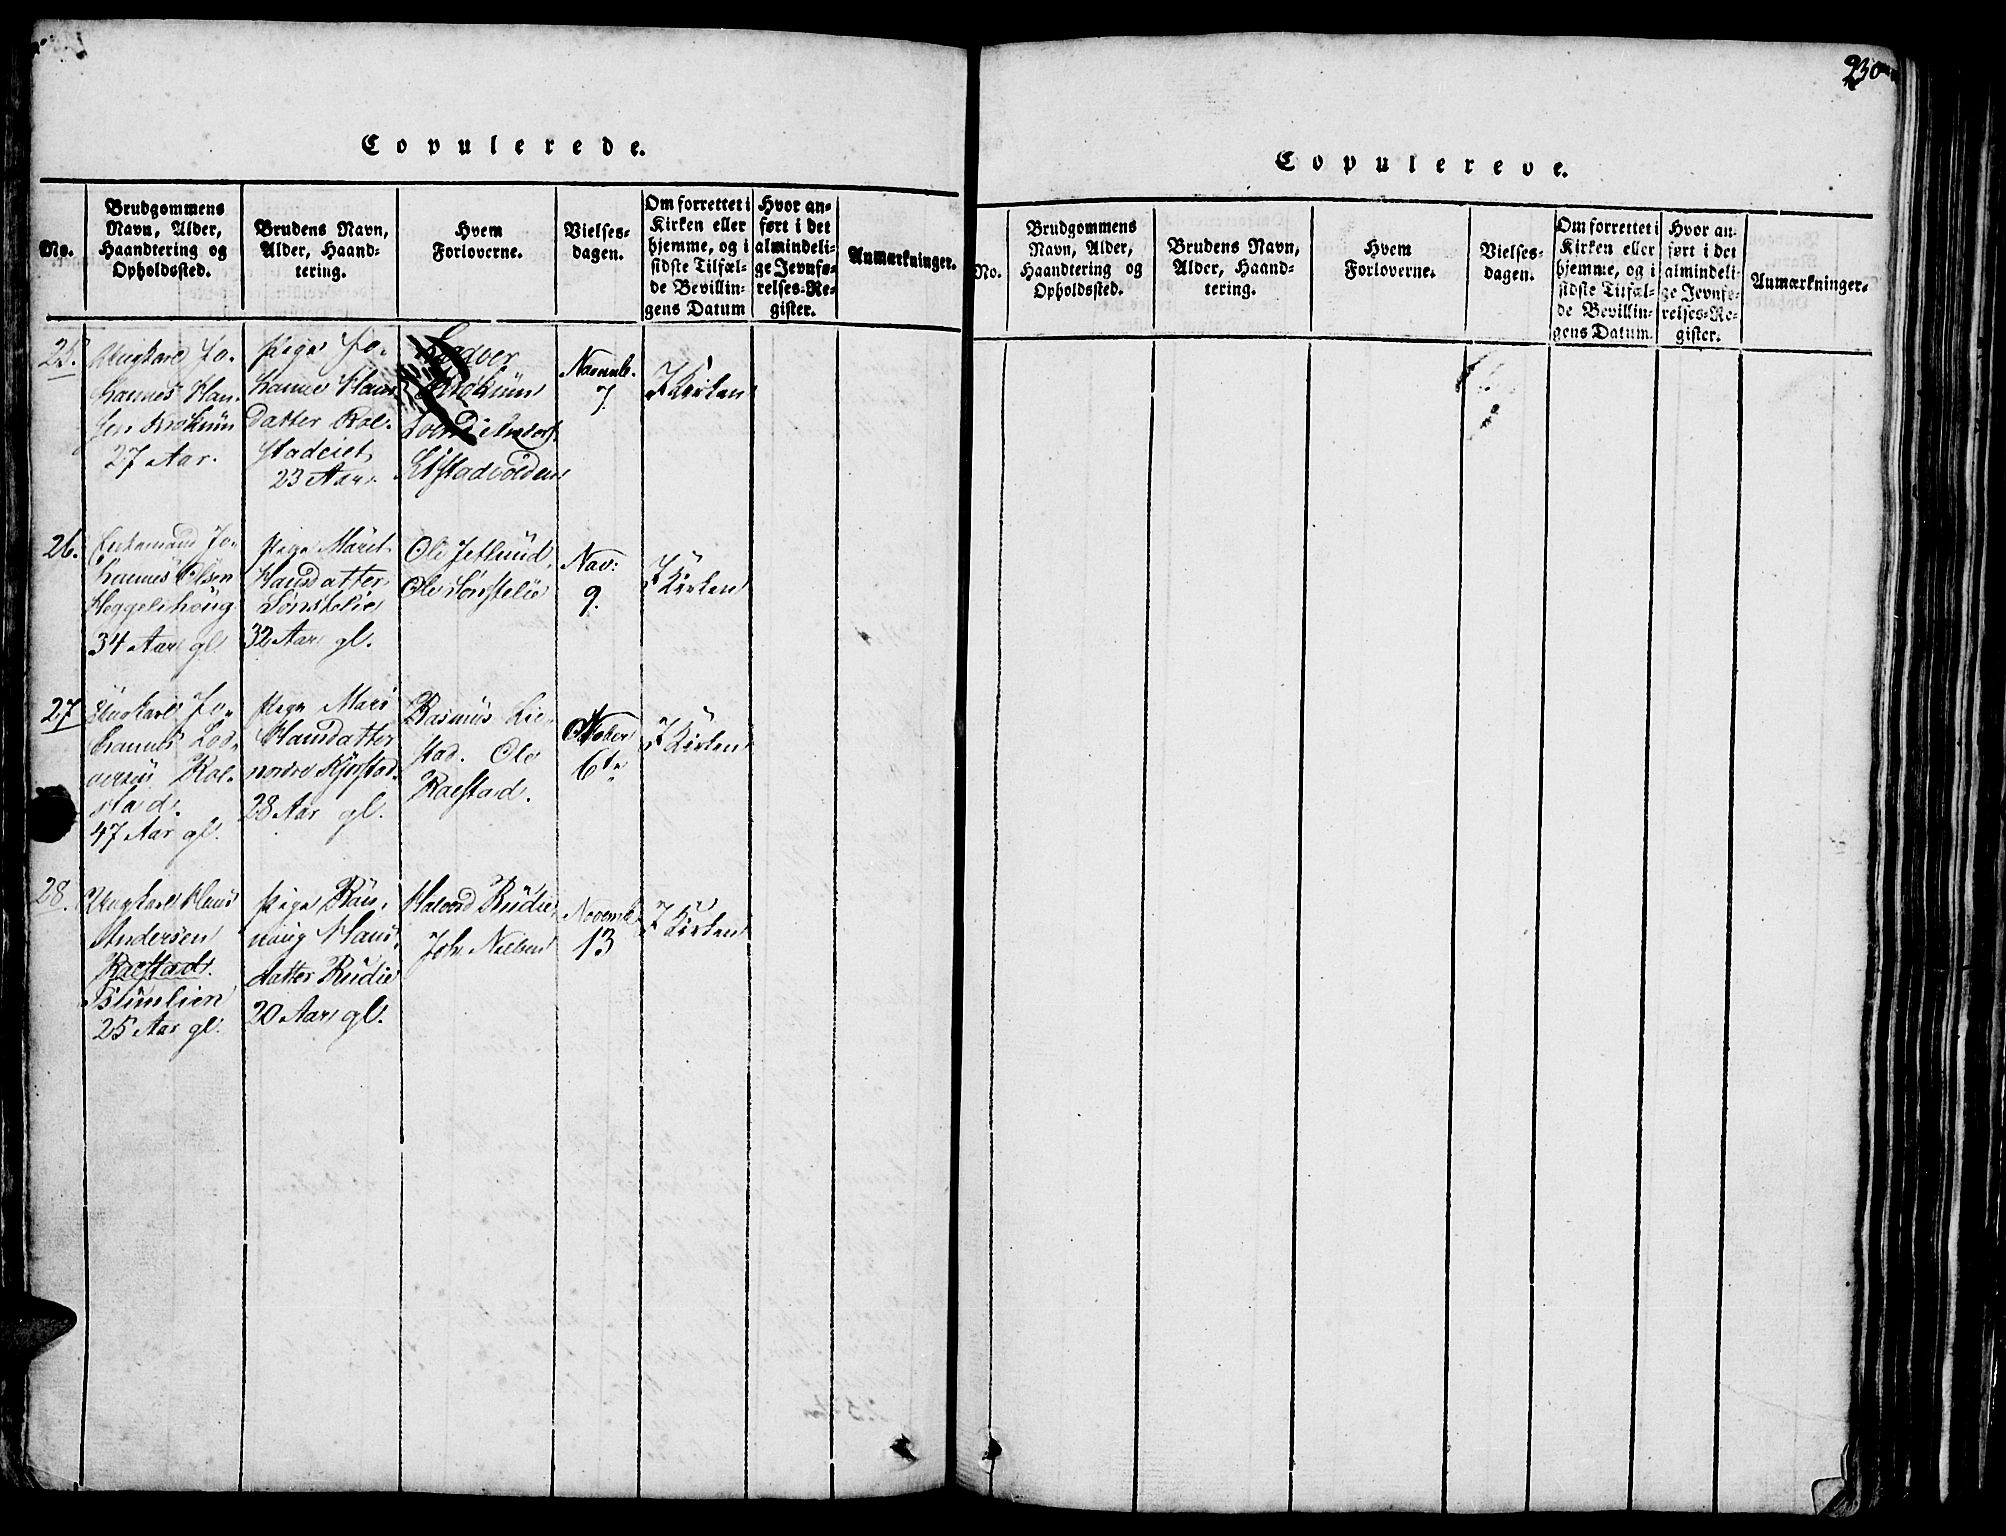 230
Copulerede.
No.
Brudgommens
Navn, Alder,
Haandtering og
Opholdssted.
Brudens Navn,
Alder, Haand-
tering.
Hvem
Forloverne.
Vielses-
dagen.
Om forrettet i
Kirken eller
hjemme, og i
sidste Tilfæl-
de Bevillin-
gens Datum
Hvor an-
ført i det
almindeli-
ge Jevnfø-
relses-Re-
gister.
Anmærkninger.
25.
Ungkarl Jo-
hannes Han-
sen
27 Aar.
Pige Jo-
hanne Hans
datter Kol-
stadeiet
23 Aar.
Novemb.
7.
I Kirken
26.
Enkemand Jo-
hannes Olsen
Heggelihoug
34 Aar gl.
Pige Marit
Hansdatter
Sønstelie
32 Aar gl.
Ole Jetlund,
Ole Sønstelie
Nov:
9.
I Kirken
27
Ungkarl Jo-
hannes Lod-
versen Kol-
stad.
47 Aar gl.
Pige Mari
Hansdatter
nordre Kjøstad.
28 Aar gl.
Rasmus Lie-
stad. Ole
Raestad.
October
6te
I Kirken
28.
Ungkarl Hans
Andersen
Raestad.
25 Aar gl.
Pige Rön-
naug Hans
datter Rudie
20 Aar gl.
Halvord Rudie,
Joh. Nielsen
Novemb.
13
I Kirken
Copulerede.
No.
Brudgommens
Navn, Alder,
Haandtering og
Opholdssted.
Brudens Navn,
Alder, Haand-
tering.
Hvem
Forloverne.
Vielses-
dagen.
Om forrettet i
Kirken eller
hjemme, og i
sidste Tilfæl-
de Bevillin-
gens Datum.
Hvor an-
ført i det
almindeli-
ge Jevnfø-
relses-Re-
gister.
Anmærkninger.